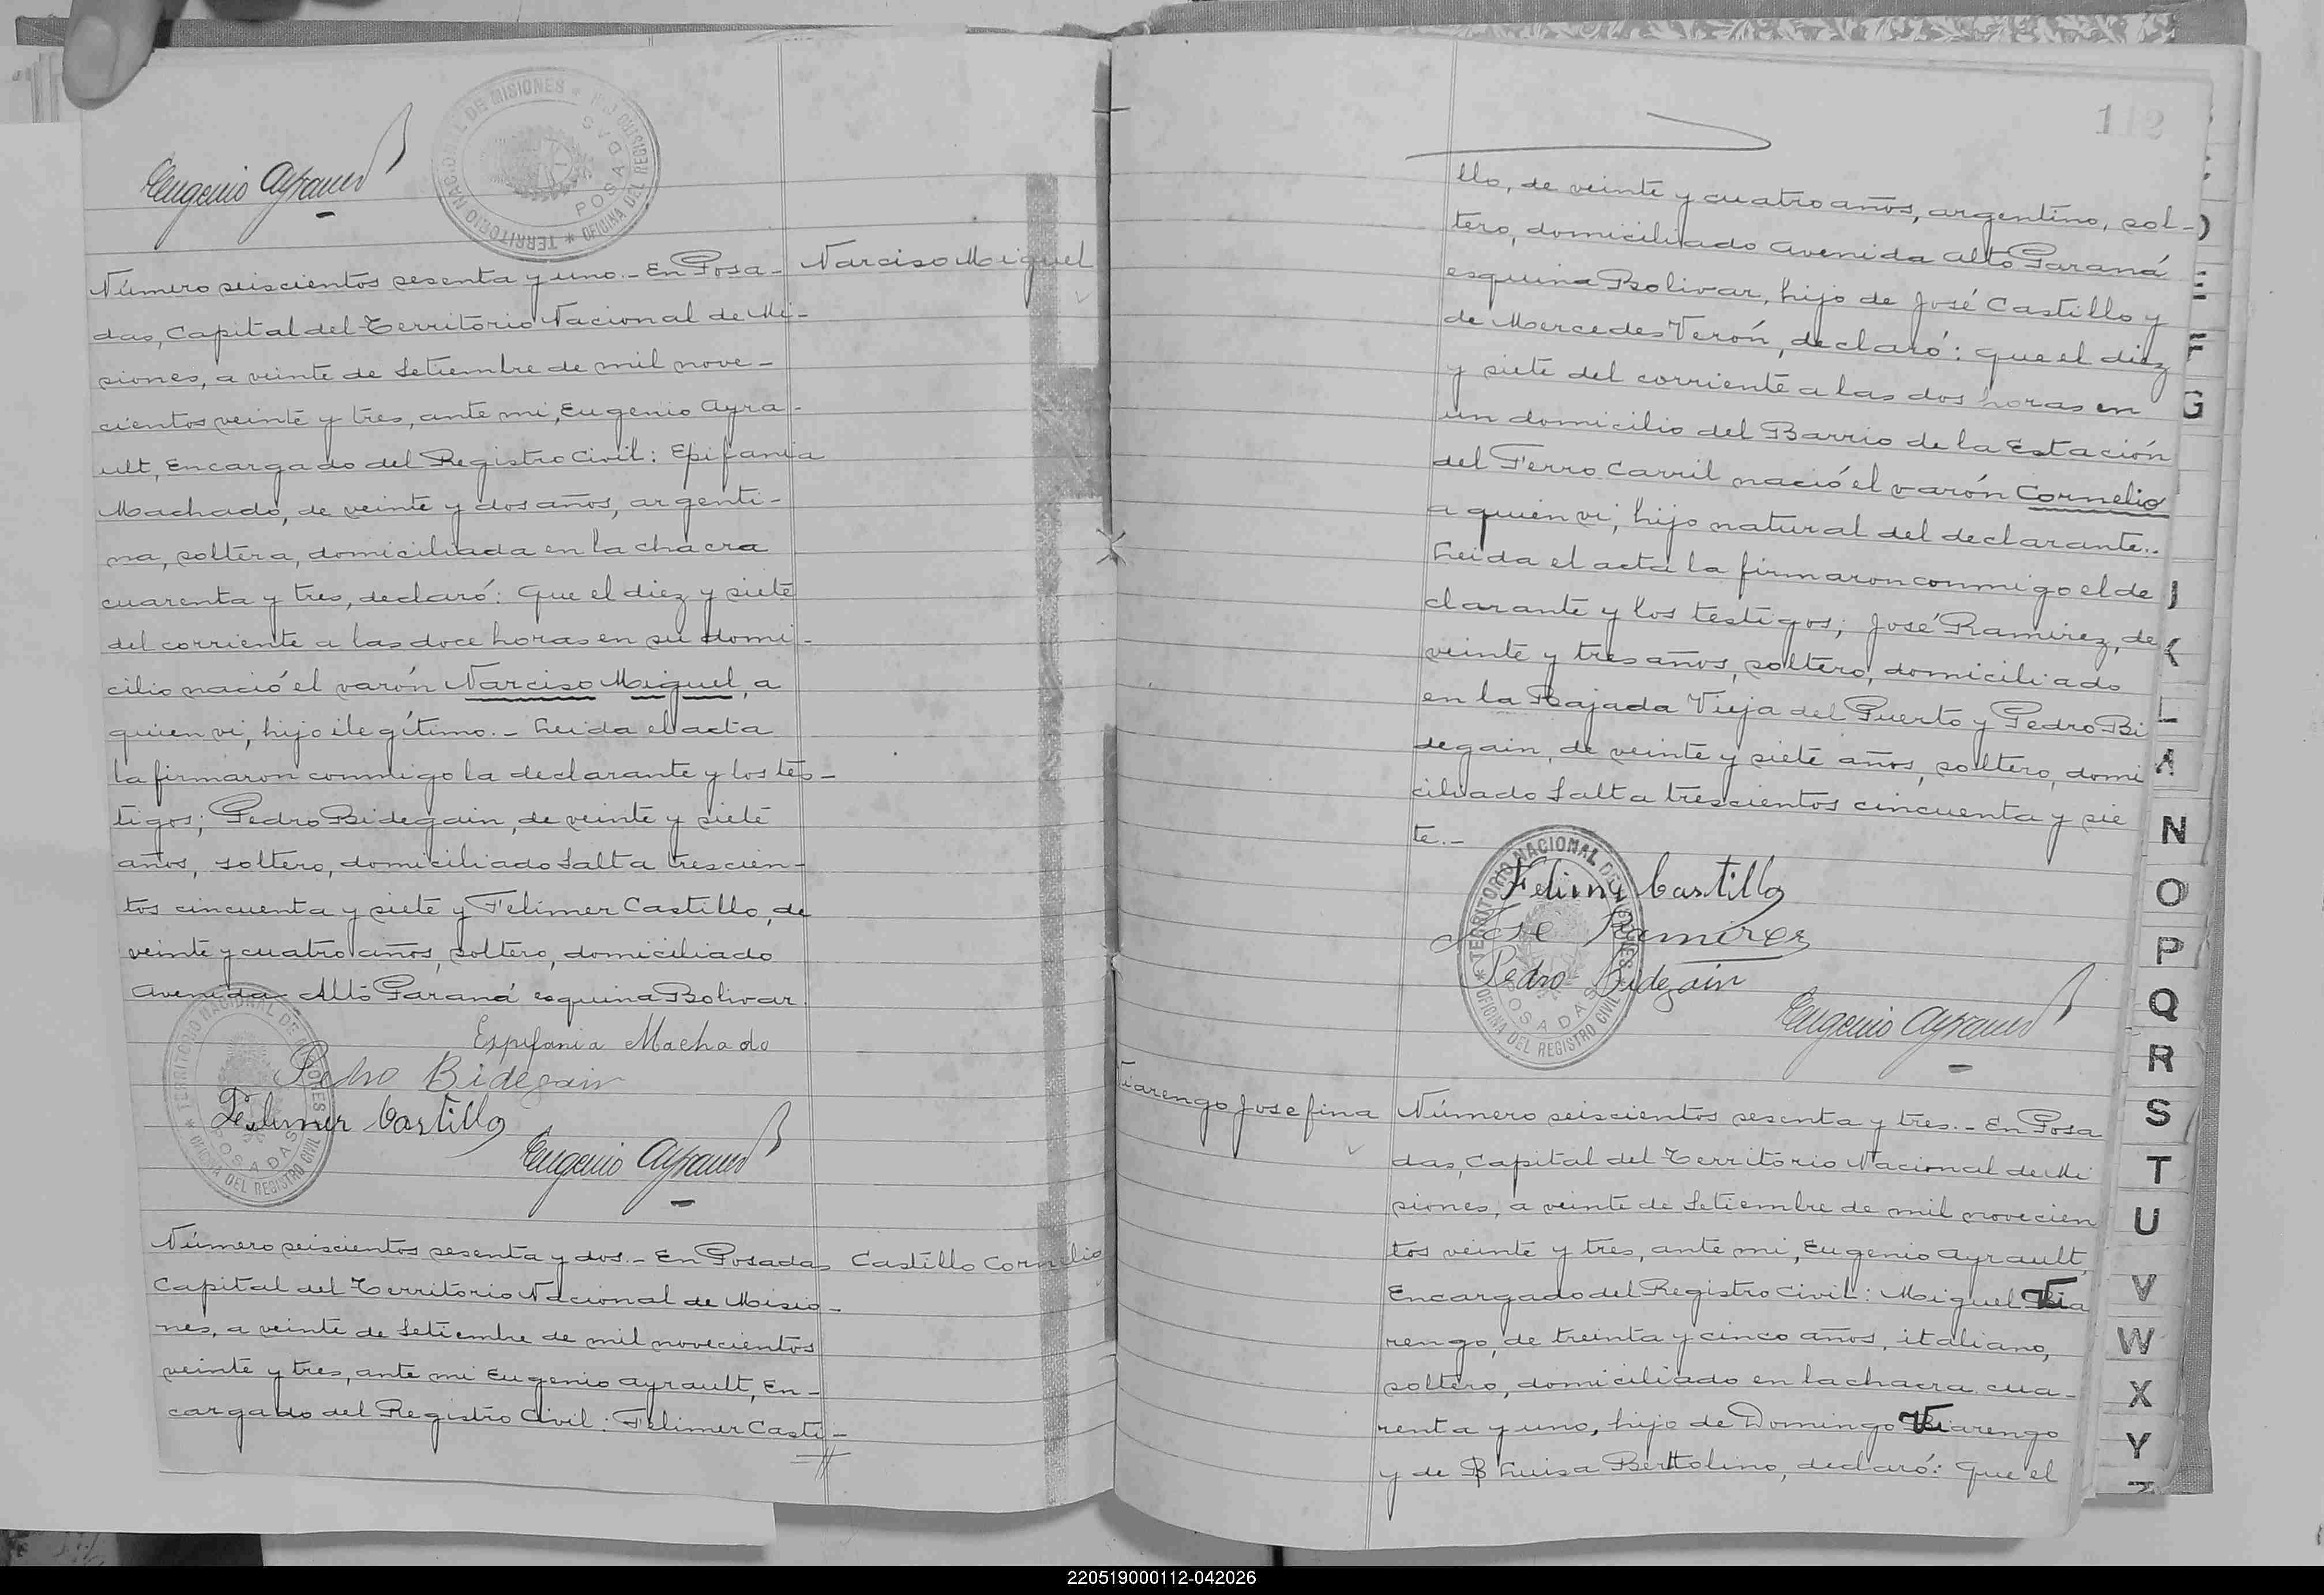 Eugenio Ayrault
TERRITORIO NACIONAL DE MISIONES * OFICINA DEL REGISTRO CIVIL * POSADAS
Narciso Miguel
Número seiscientos sesenta y uno.- En Posa-
das, Capital del Territorio Nacional de Mi-
siones, a veinte de Setiembre de mil nove-
cientos veinte y tres, ante mi, Eugenio Ayra-
ult, Encargado del Registro Civil: Epifania
Machado, de veinte y dos años, argenti-
na, soltera, domiciliada en la chacra
cuarenta y tres, declaró: Que el diez y siete
del corriente a las doce horas en su domi-
cilio nació el varón Narciso Miguel, a
quien vi, hijo ilegítimo.- Leida el acta
la firmaron conmigo la declarante y los tes-
tigos; Pedro Bidegain, de veinte y siete
años, soltero, domiciliado Salta trescien-
tos cincuenta y siete y Felimer Castillo, de
veinte y cuatro años, soltero, domiciliado
Avenida Alto Paraná esquina Bolivar.
Espifania Machado
Pedro Bidegain
Felimer Castillo
Eugenio Ayrault
TERRITORIO NACIONAL DE MISIONES * OFICINA DEL REGISTRO CIVIL * POSADAS
Castillo Cornelio
Número seiscientos sesenta y dos.- En Posadas
Capital del Territorio Nacional de Misio-
nes, a veinte de Setiembre de mil novecientos
veinte y tres, ante mi Eugenio Ayrault, En-
cargado del Registro Civil: Felimer Casti-
112
llo, de veinte y cuatro años, argentino, sol-
tero, domiciliado Avenida Alto Paraná
esquina Bolivar, hijo de José Castillo y
de Mercedes Verón, declaró: Que el diez
y siete del corriente a las dos horas en
un domicilio del Barrio de la Estación
del Ferro Carril nació el varón Cornelio
a quien vi, hijo natural del declarante..
Leida el acta la firmaron conmigo el de
clarante y los testigos; José Ramirez, de
veinte y tres años, soltero, domiciliado
en la Bajada Vieja del Puerto y Pedro Bi
degain, de veinte y siete años, soltero, domi
ciliado Salta trescientos cincuenta y sie
te.-
Felimer Castillo
José Ramirez
Pedro Bidegain
Eugenio Ayrault
TERRITORIO NACIONAL DE MISIONES * OFICINA DEL REGISTRO CIVIL * POSADAS
Viarengo Josefina
Número seiscientos sesenta y tres.- En Posa
das, Capital del Territorio Nacional de Mi
siones, a veinte de Setiembre de mil novecien
tos veinte y tres, ante mi, Eugenio Ayrault,
Encargado del Registro Civil: Miguel Via
rengo, de treinta y cinco años, italiano,
soltero, domiciliado en la chacra cua-
renta y uno, hijo de Domingo Viarengo
y de Luisa Berttolino, declaró: Que el
E
F
G
J
K
L
N
O
P
Q
R
S
T
U
V
W
X
Y
220519000112-042026